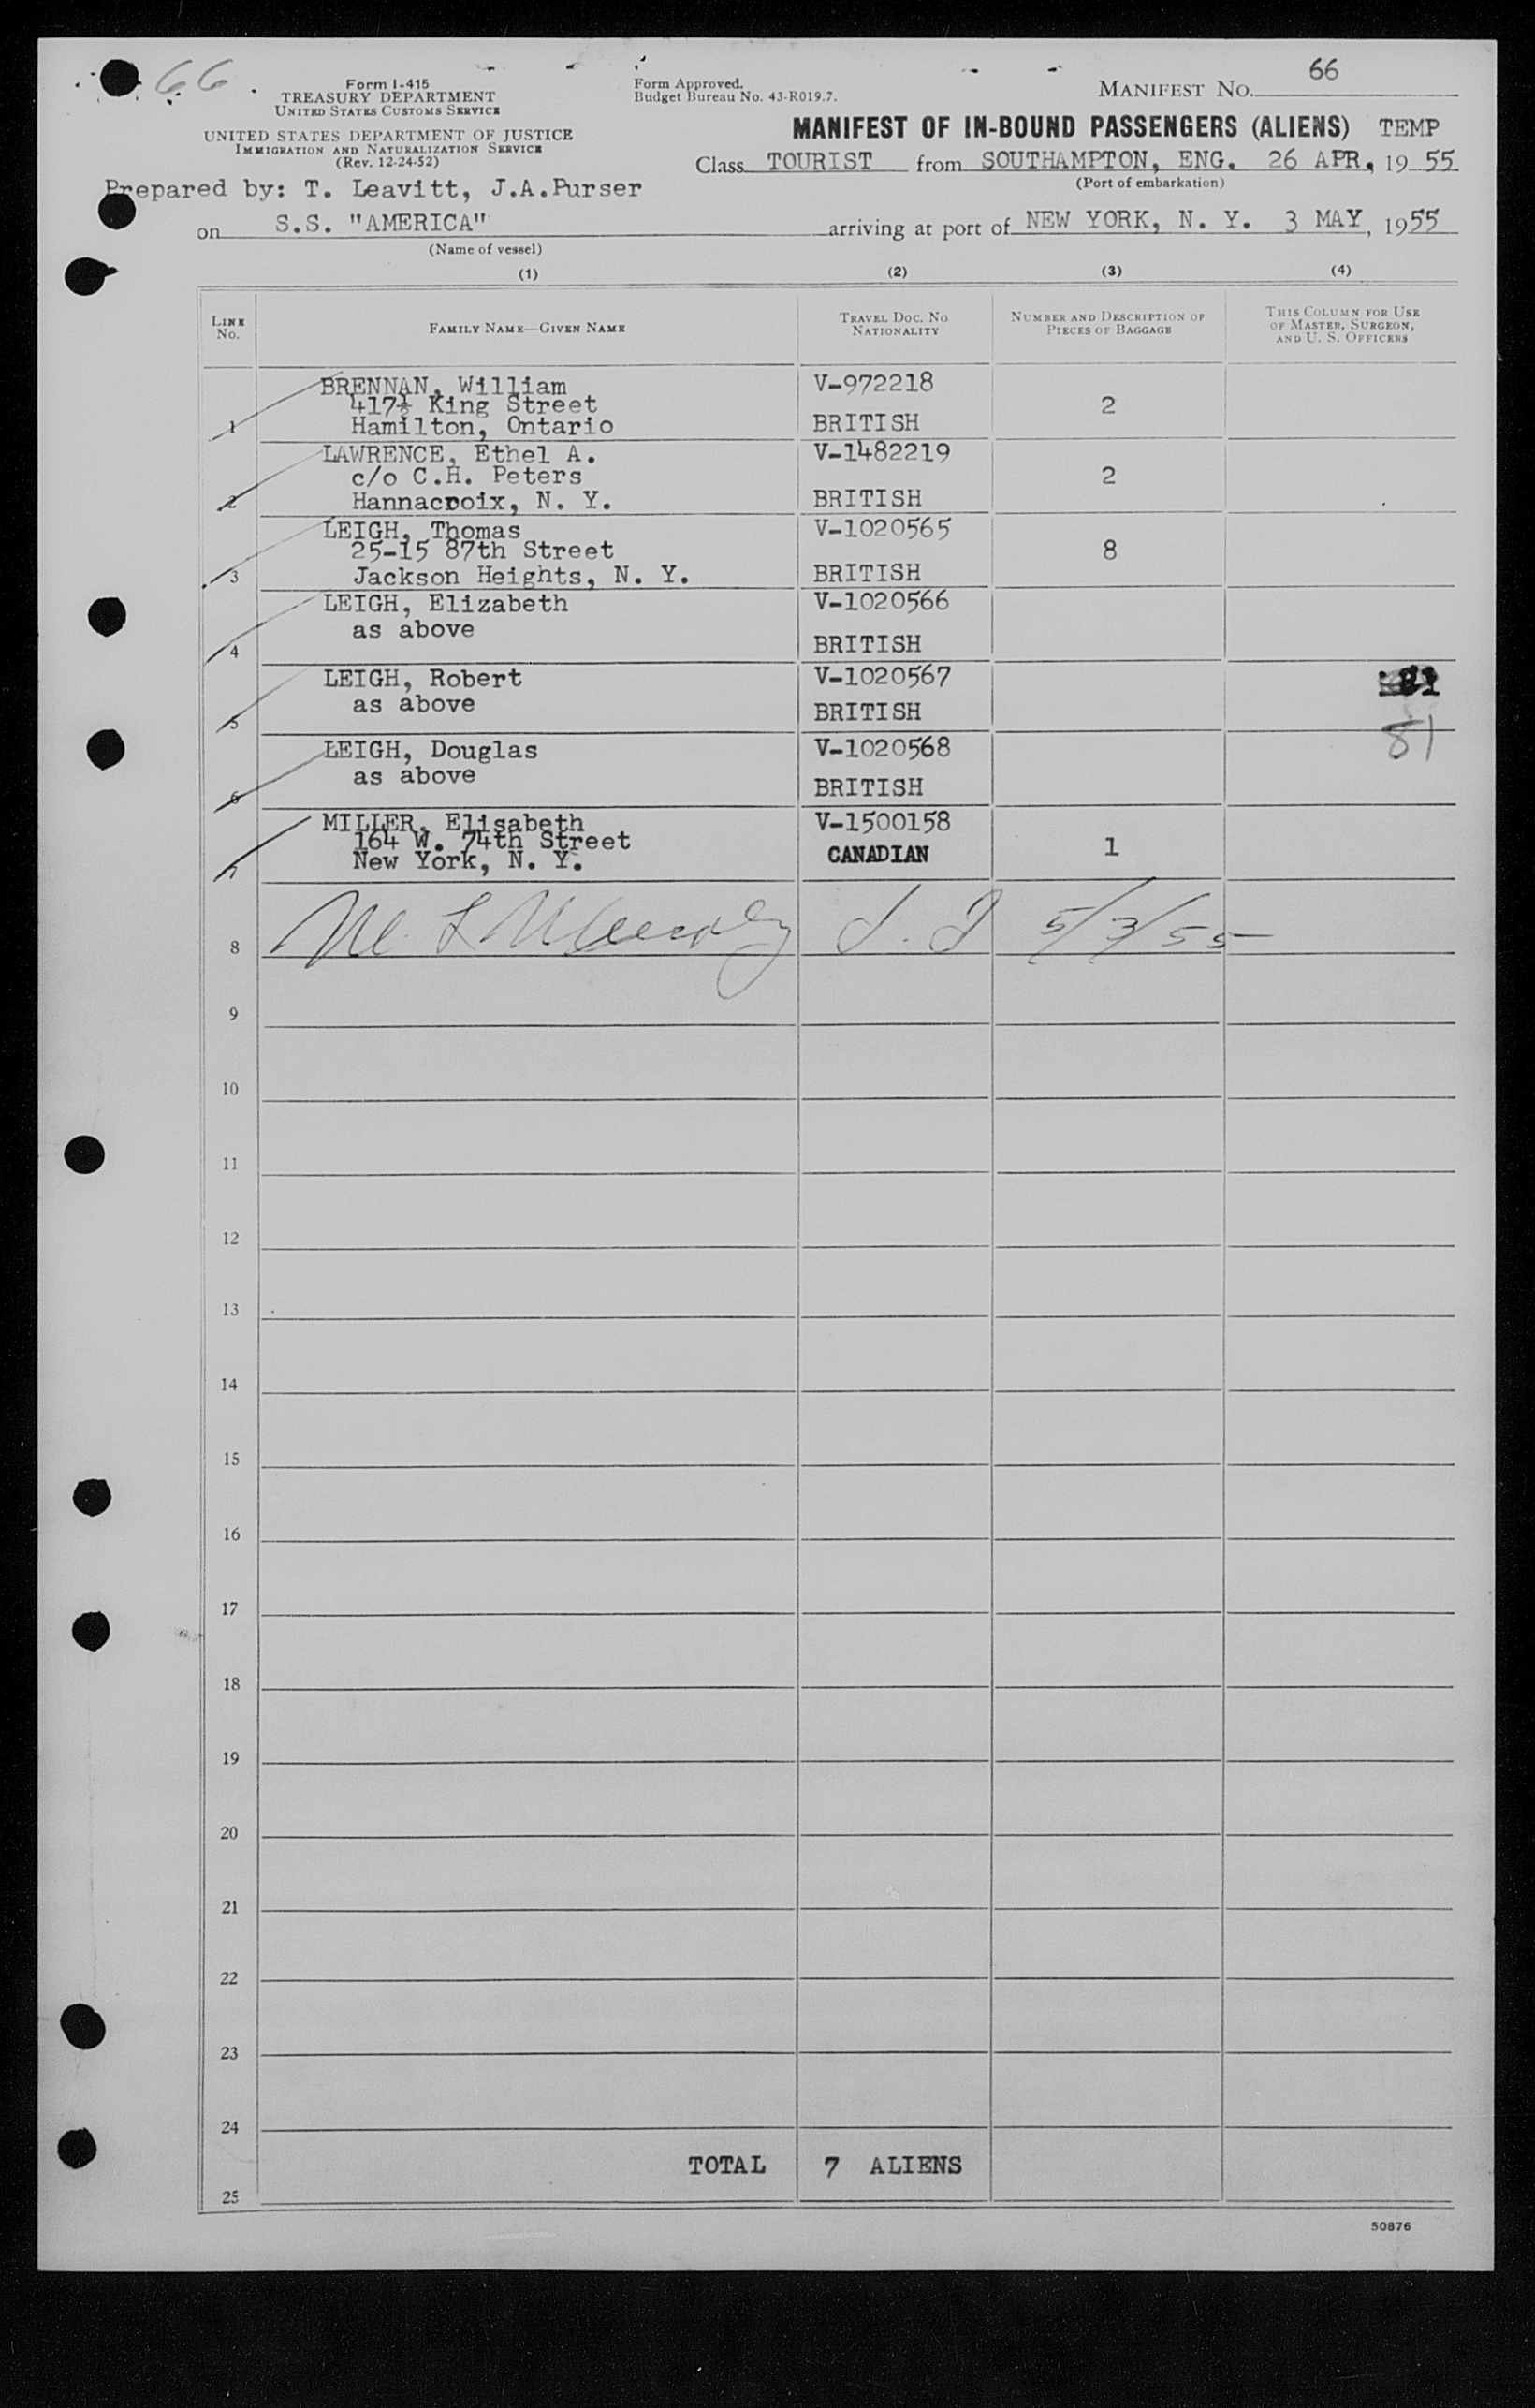 66
Form I-415
TREASURY DEPARTMENT
UNITED STATES CUSTOMS SERVICE
UNITED STATES DEPARTMENT OF JUSTICE
IMMIGRATION AND NATURALIZATION SERVICE
(Rev. 12-24-52)
Form Approved.
Budget Bureau No. 43-R019.7.
MANIFEST NO. 66
MANIFEST OF IN-BOUND PASSENGERS (ALIENS) TEMP
Class TOURIST from SOUTHAMPTON, ENG. 26 APR, 19 55
(Port of embarkation)
Prepared by: T. Leavitt, J.A.Purser
on S.S. "AMERICA" arriving at port of NEW YORK, N. Y. 3 MAY, 1955
(Name of vessel)
(1) (2) (3) (4)
LINE No. FAMILY NAME—GIVEN NAME TRAVEL DOC. NO. NATIONALITY NUMBER AND DESCRIPTION OF PIECES OF BAGGAGE THIS COLUMN FOR USE OF MASTER, SURGEON, AND U. S. OFFICERS
BRENNAN, William V-972218
417½ King Street 2
1 Hamilton, Ontario BRITISH
LAWRENCE, Ethel A. V-1482219
c/o C.H. Peters 2
2 Hannacroix, N. Y. BRITISH
LEIGH, Thomas V-1020565
25-15 87th Street 8
3 Jackson Heights, N. Y. BRITISH
LEIGH, Elizabeth V-1020566
as above
4 BRITISH
LEIGH, Robert V-1020567
as above
5 BRITISH 81
LEIGH, Douglas V-1020568
as above
6 BRITISH
MILLER, Elisabeth V-1500158
164 W. 74th Street CANADIAN 1
7 New York, N. Y.
8 5/3/55
9
10
11
12
13
14
15
16
17
18
19
20
21
22
23
24
TOTAL 7 ALIENS
25
50876